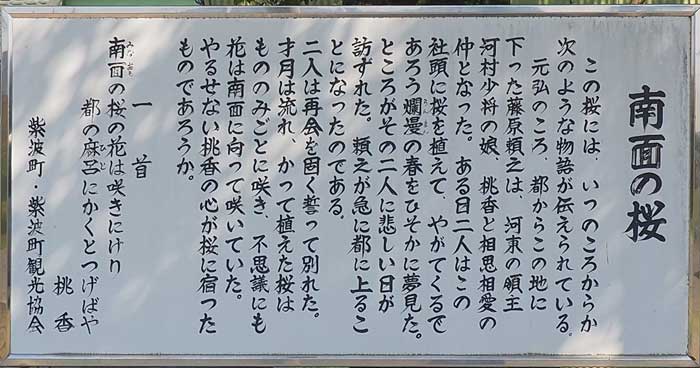 南面の桜
この桜には、いつのころからか
次のような物語が伝えられている。
元弘のころ、都からこの地に
下った藤原頼之は、河東の領主
河村少将の娘、桃香と相思相愛の
仲となった。ある日二人はこの
社頭に桜を植えて、やがてくるで
あろう爛漫の春をひそかに夢見た。
ところがその二人に悲しい日が
訪ずれた。頼之が急に都に上るこ
とになったのである。
二人は再会を固く誓って別れた。
才月は流れ、かって植えた桜は
もののみごとに咲き、不思議にも
花は南面に向って咲いていた。
やるせない桃香の心が桜に宿った
ものであろうか。
一首
南面の桜の花は咲きにけり
都の麻呂にかくとつげばや
桃香
紫波町・紫波町観光協会